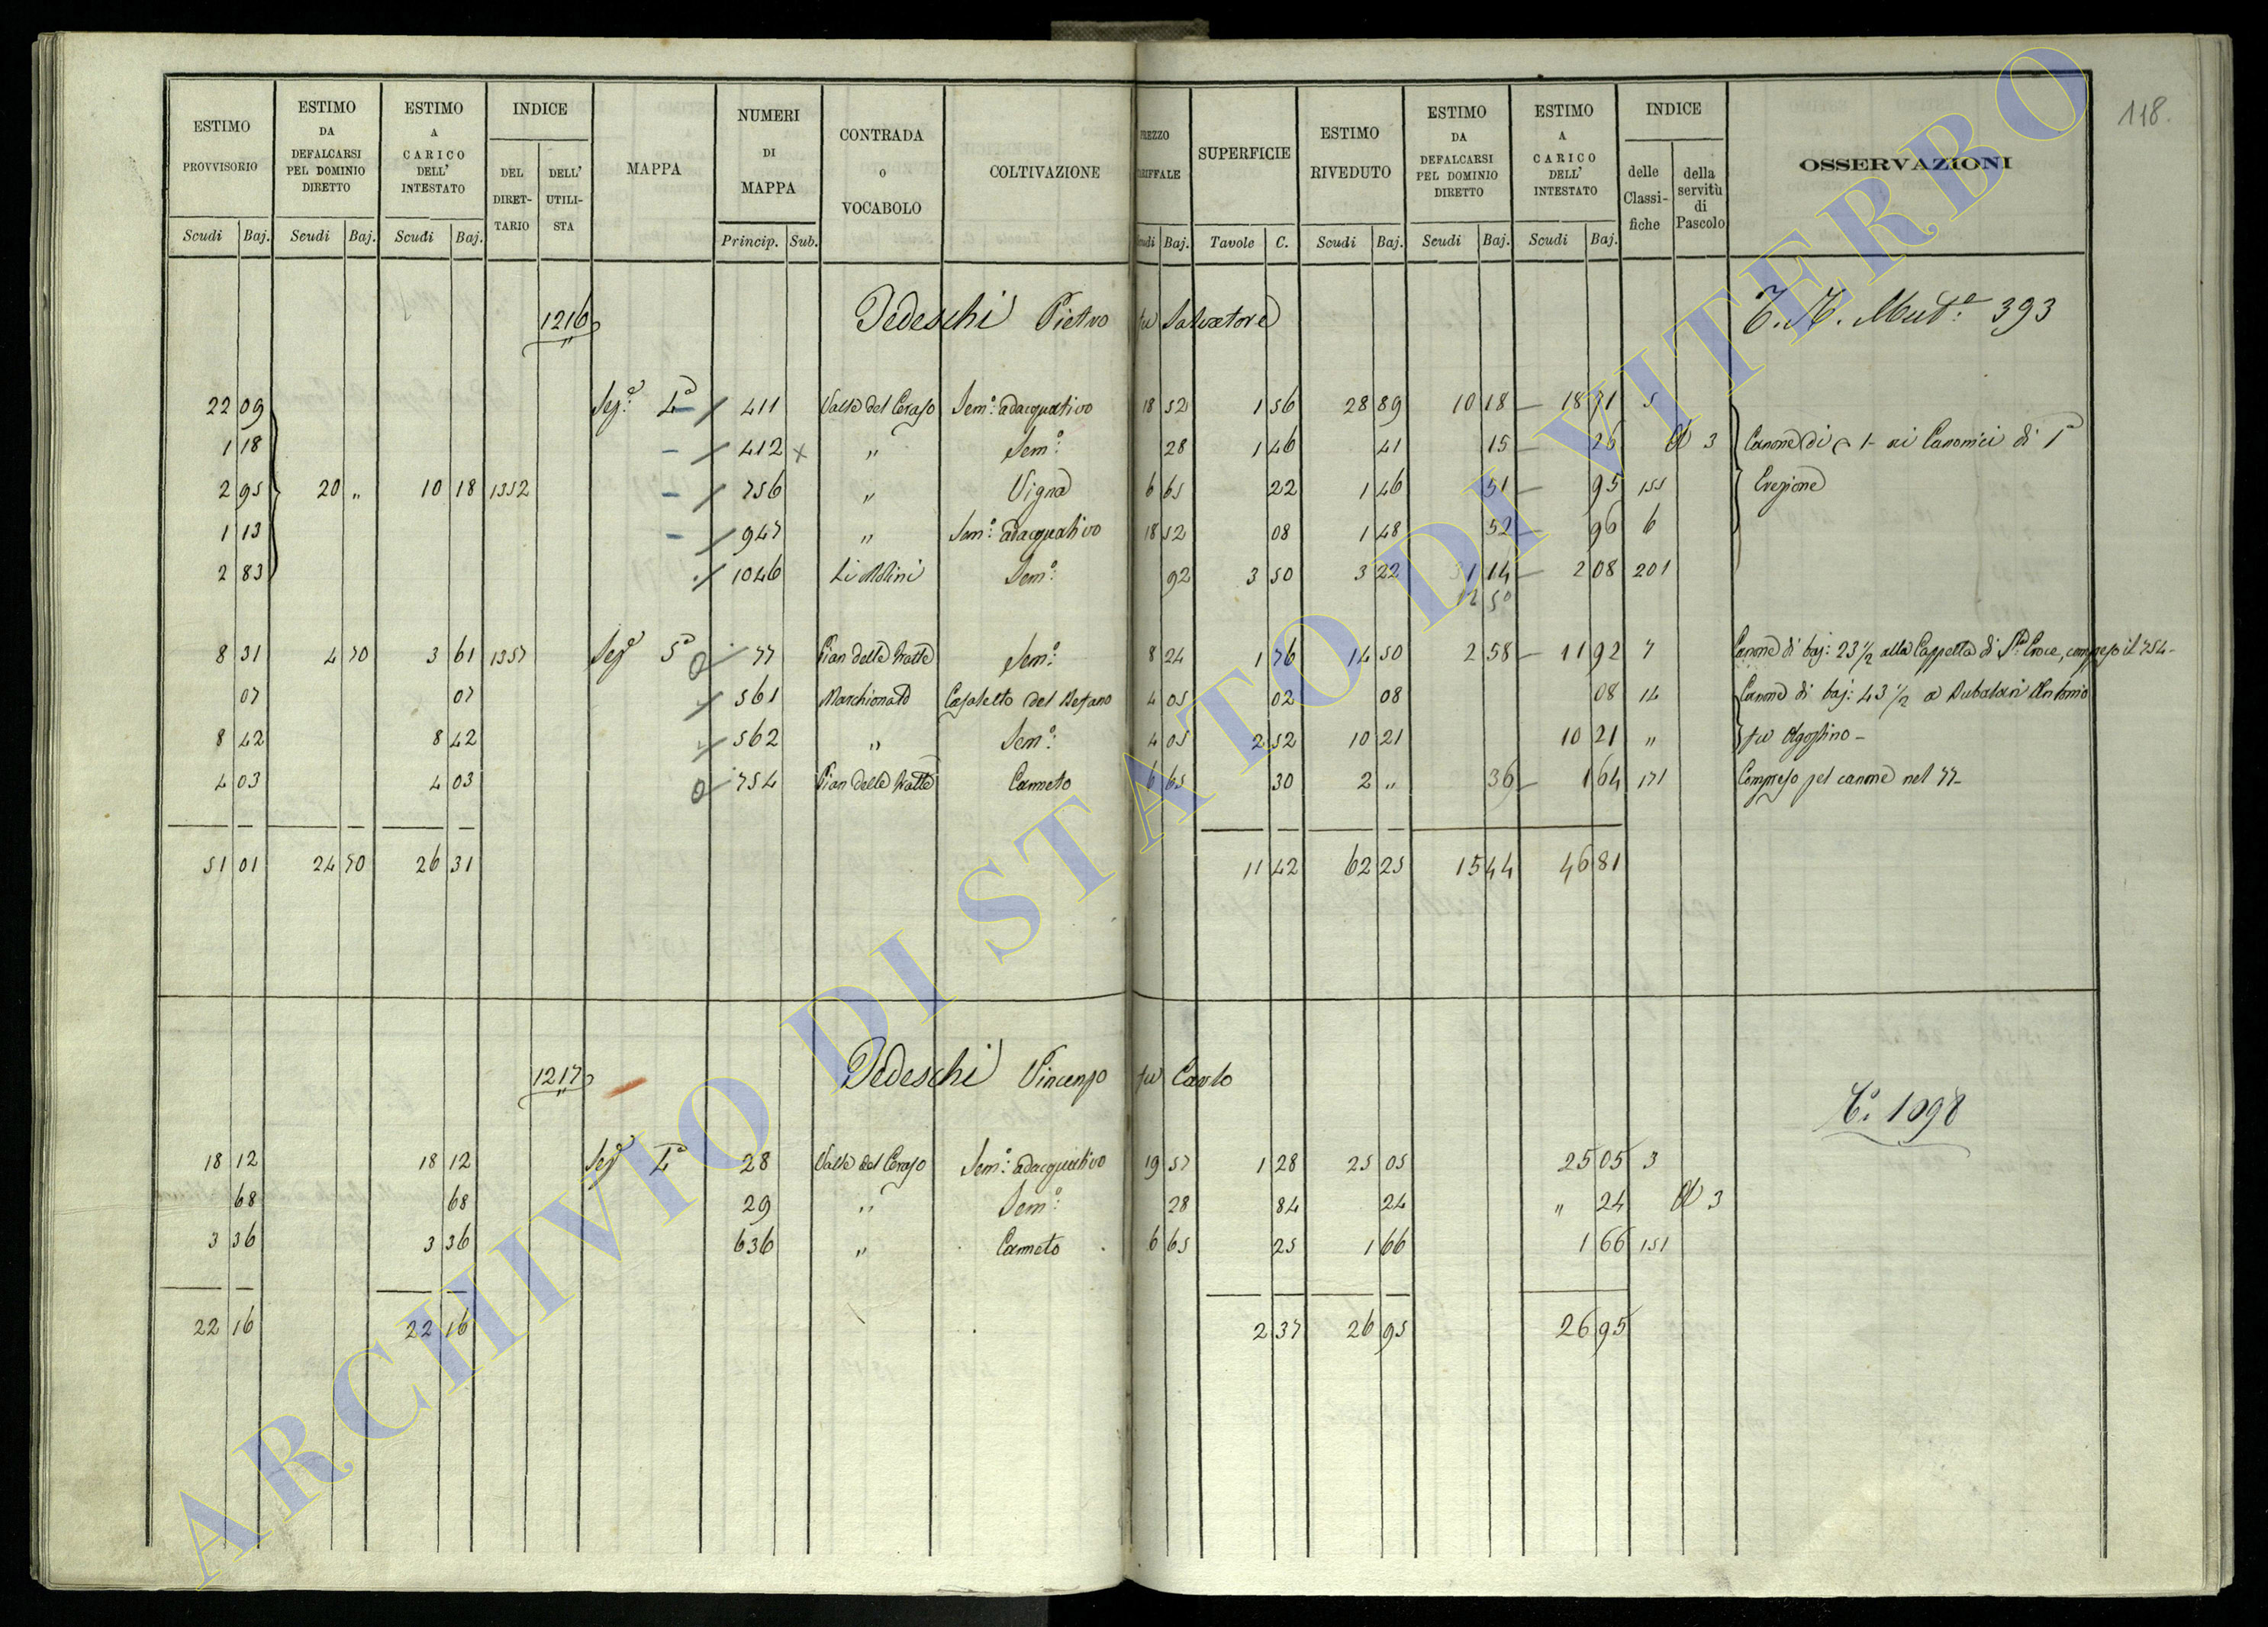 118.
ESTIMO PROVVISORIO | ESTIMO DA DEFALCARSI PEL DOMINIO DIRETTO | ESTIMO A CARICO DELL' INTESTATO | INDICE | MAPPA | NUMERI DI MAPPA | CONTRADA O VOCABOLO | COLTIVAZIONE | PREZZO TARIFFALE | SUPERFICIE | ESTIMO RIVEDUTO | ESTIMO DA DEFALCARSI PEL DOMINIO DIRETTO | ESTIMO A CARICO DELL' INTESTATO | INDICE | OSSERVAZIONI
DEL DIRET-TARIO | DELL' UTILI-STA | delle Classi-fiche | della servitù di Pascolo
Scudi | Baj. | Scudi | Baj. | Scudi | Baj. | Princip. | Sub. | Scudi | Baj. | Tavole | C. | Scudi | Baj. | Scudi | Baj. | Scudi | Baj.
1216 Tedeschi Pietro fu Salvatore Mut.e 393
22 09 Sez.e 4a 411 Valle del Ceraso Sem.o adacquativo 18 52 1 56 28 89 10 18 — 18 71 5
1 18 — 412 x „ Sem.o 28 1 46 41 15 — 26 A 3 Canone di 1 - ai Canonici di 1a
2 95 20 „ 10 18 1352 — 756 „ Vigna 6 65 22 1 46 51 — 95 151 Erezione
1 13 — 947 „ Sem.o adacquativo 18 52 08 1 48 52 — 96 6
2 83 1046 Sem.o 92 3 50 3 22 1 14 — 2 08 201
12 50
8 31 4 70 3 61 1357 Sez.e 5a 77 Pian delle Sem.o 8 24 1 76 14 50 2 58 — 11 92 7 Canone di baj: 23 1/2 alla Cappella di S.ta Croce, compreso il 754 -
07 07 561 Marchionato Casaletto del 4 05 02 08 08 14 Canone di baj: 43 1/2 a Antonio
8 42 8 42 562 „ Sem.o 4 05 2 52 10 21 10 21 „ fu Agostino -
4 03 4 03 754 Pian delle Canneto 6 65 30 2 „ 36 — 1 64 171 Compreso pel canone nel 77 -
51 01 24 70 26 31 11 42 62 25 15 44 46 81
1217 Tedeschi Vincenzo fu Carlo
C. 1098
18 12 18 12 Sez.e 4a 28 Valle del Ceraso Sem.o adacquativo 19 57 1 28 25 05 25 05 3
68 68 29 „ Sem.o 28 84 24 „ 24 A 3
3 36 3 36 636 „ Canneto 6 65 25 1 66 1 66 151
22 16 22 16 2 37 26 95 26 95
ARCHIVIO DI STATO DI VITERBO